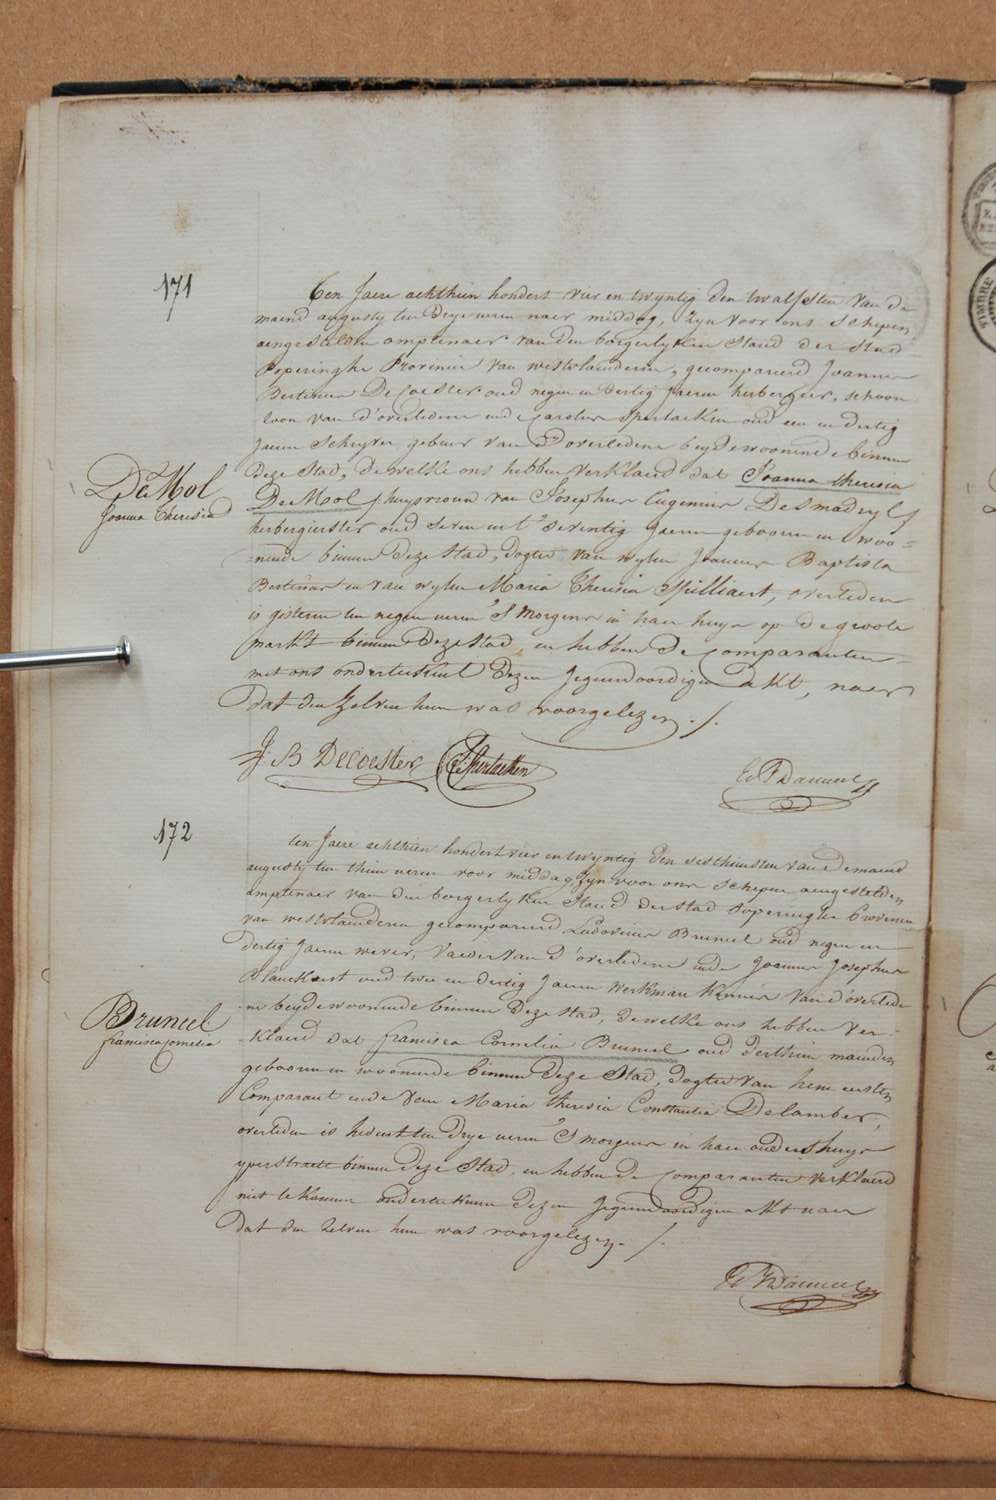 171
Ten Jaere achthien hondert vier en twyntig den twalfsten van de
maend augusty ten drye uren naer middag, zyn voor ons Schepen
aengestelden amptenaer van den borgerlyken Staud der Stad
Poperinghe Provincie van westvlaenderen, gecompareerd Joannes
Bertinus Decoester oud negen en dertig Jaeren herbergier, schoon
zoon van d'overledene ende Carolus Sperlaeken oud een en dertig
Jaeren Schryver gebuer van d'overledene beyde woonende binnen
deze Stad, dewelke ons hebben verklaerd dat Joanna theresia
De Mol
Joanna Theresia
De Mol huysvrouw van Josephus Eugenius Desmadryl
herbergierster oud seven en t'seventig Jaeren geboren en woo=
=nende binnen deze stad, dogter van wylen Joannes Baptista
en van wylen Maria Theresia Spilliaert, overleden
is gisteren ten negen uren 'S morgens in haer huys op de groote
markt binnen deze stad, en hebben de Comparanten
met ons onderteekent dezen Jegenwoordigen akt, naer
dat den zelven hun was voorgelezen ./.
J. B Decoester C: Sperlaeken
172
ten Jaere achthien hondert vier en twyntig den sesthiensten van de maend
augusty ten thien uren voor middag, zyn voor ons schepen aengestelden
amptenaer van den borgerlyken Staud der stad Poperinghe Provincie
van westvlaenderen gecompareerd Ludovicus Bruneel oud negen en
dertig Jaeren wever, Vaeder van d'overledene ende Joannes Josephus
Blanckaert oud twee en dertig Jaeren werkman kennis van d'overlede
=ne beyde woonende binnen deze stad, dewelke ons hebben ver=
Bruneel
francisca Cornelia
=klaerd dat francisca Cornelia Bruneel oud derthien maenden
geboren en woonende binnen deze Stad, dogter van hem eersten
Comparant ende van Maria theresia Constantia Delamber,
overleden is heden ten drye uren 'S morgens in haer ouders huys
yperstraete binnen deze Stad, en hebben de Comparanten verklaerd
niet te konnen onderteekenen dezen Jegenwoordigen akt naer
dat den zelven hun was voorgelezen. /.